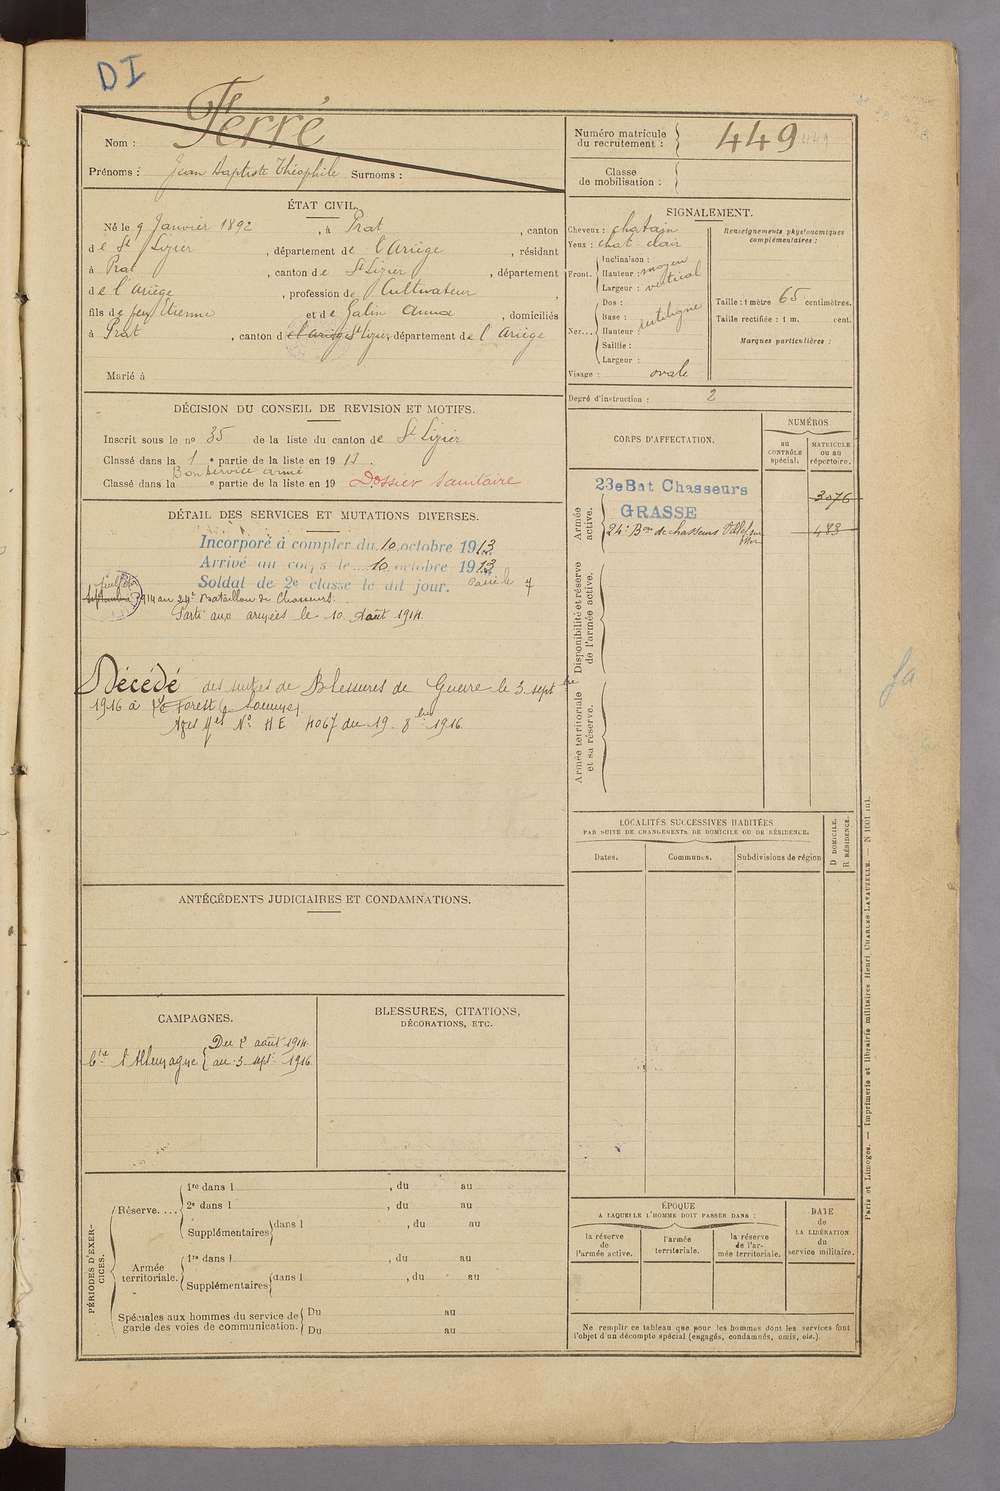 DI
Nom : Ferré
Prénoms : Jean Baptiste Théophile Surnoms :
Numéro matricule du recrutement : 449
Classe de mobilisation :
ÉTAT CIVIL.
Né le 9 Janvier 1892, à Prat, canton
de St Lizier, département de l'Ariège, résidant
à Prat, canton de St Lizier, département
de l'Ariège, profession de Cultivateur,
fils de feu Etienne et de Galin Anna, domiciliés
à Prat, canton de l'Ariège St Lizier, département de l'Ariège
Marié à
SIGNALEMENT.
Cheveux : chatain
Yeux : chat. clair
Front. Inclinaison :
Hauteur : moyen
Largeur : vertical
Nez... Dos :
Base :
Hauteur : rectiligne
Saillie :
Largeur :
Visage : ovale
Renseignements physionomiques complémentaires :
Taille : 1 mètre 65 centimètres.
Taille rectifiée : 1 m. cent.
Marques particulières :
Degré d'instruction : 2
DÉCISION DU CONSEIL DE REVISION ET MOTIFS.
Inscrit sous le no 35 de la liste du canton de St Lizier
Classé dans la 1 e partie de la liste en 1913.
Bon service armé
Classé dans la e partie de la liste en 19 Dossier sanitaire
DÉTAIL DES SERVICES ET MUTATIONS DIVERSES.
Incorporé à compter du 10 octobre 1913
Arrivé au corps le 10 octobre 1913
Soldat de 2e classe le dit jour. Passé le 7
juillet
septembre 1914 au 24e Bataillon de Chasseurs.
Parti aux armées le 10 Août 1914.
Décédé des suites de Blessures de Guerre le 3 septbre
1916 à Forest (Somme).
Avis No HE 4067 du 19. 8bre 1916.
CORPS D'AFFECTATION.
NUMÉROS
AU CONTRÔLE spécial.
MATRICULE ou au répertoire.
Armée active.
23e Bat Chasseurs
GRASSE
3076
24e Bon de chasseurs Villef. sur Mer
483
Disponibilité et réserve de l'armée active.
Armée territoriale et sa réserve.
fa
LOCALITÉS SUCCESSIVES HABITÉES
PAR SUITE DE CHANGEMENTS DE DOMICILE OU DE RÉSIDENCE.
Dates.
Communes.
Subdivisions de région
D DOMICILE.
R RÉSIDENCE.
ANTÉCÉDENTS JUDICIAIRES ET CONDAMNATIONS.
CAMPAGNES.
Ctre l'Allemagne Du 2 août 1914.
au 3 sept. 1916.
BLESSURES, CITATIONS,
DÉCORATIONS, ETC.
PÉRIODES D'EXERCICES.
Réserve.... 1re dans l , du au
2e dans l , du au
Supplémentaires dans l , du au
Armée territoriale. 1re dans l , du au
Supplémentaires dans l , du au
Spéciales aux hommes du service de garde des voies de communication. Du au
Du au
ÉPOQUE
A LAQUELLE L'HOMME DOIT PASSER DANS :
la réserve de l'armée active.
l'armée territoriale.
la réserve de l'armée territoriale.
DATE de LA LIBÉRATION du service militaire.
Ne remplir ce tableau que pour les hommes dont les services font
l'objet d'un décompte spécial (engagés, condamnés, omis, etc.).
Paris et Limoges. — Imprimerie et librairie militaires Henri CHARLES-LAVAUZELLE. — N 1001 int.